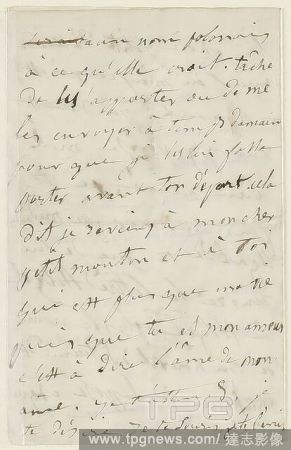 nom polonais
à ce qu'elle croit. tâche
de les apporter ou de me
les envoyer à temps demain
pour que je les lui fasse
porter avant ton départ. cela
dit je reviens à mon cher
petit mouton et à toi
qui est plus que ma vie
puis que tu es mon amour
c'est à dire l'âme de mon
âme. je
te désire
TPG
www.tpgnews.com / 達志影像